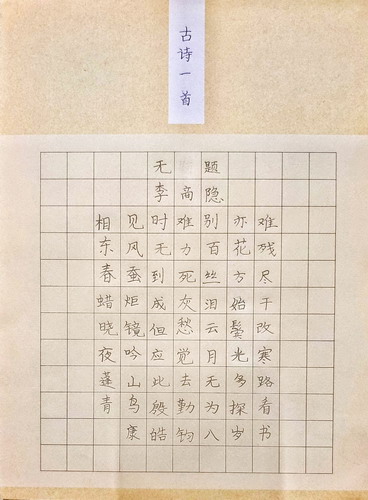 古诗一首
无题
李商隐
相见时难别亦难
东风无力百花残
春蚕到死丝方尽
蜡炬成灰泪始干
晓镜但愁云鬓改
夜吟应觉月光寒
蓬山此去无多路
青鸟殷勤为探看
康皓钧八岁书